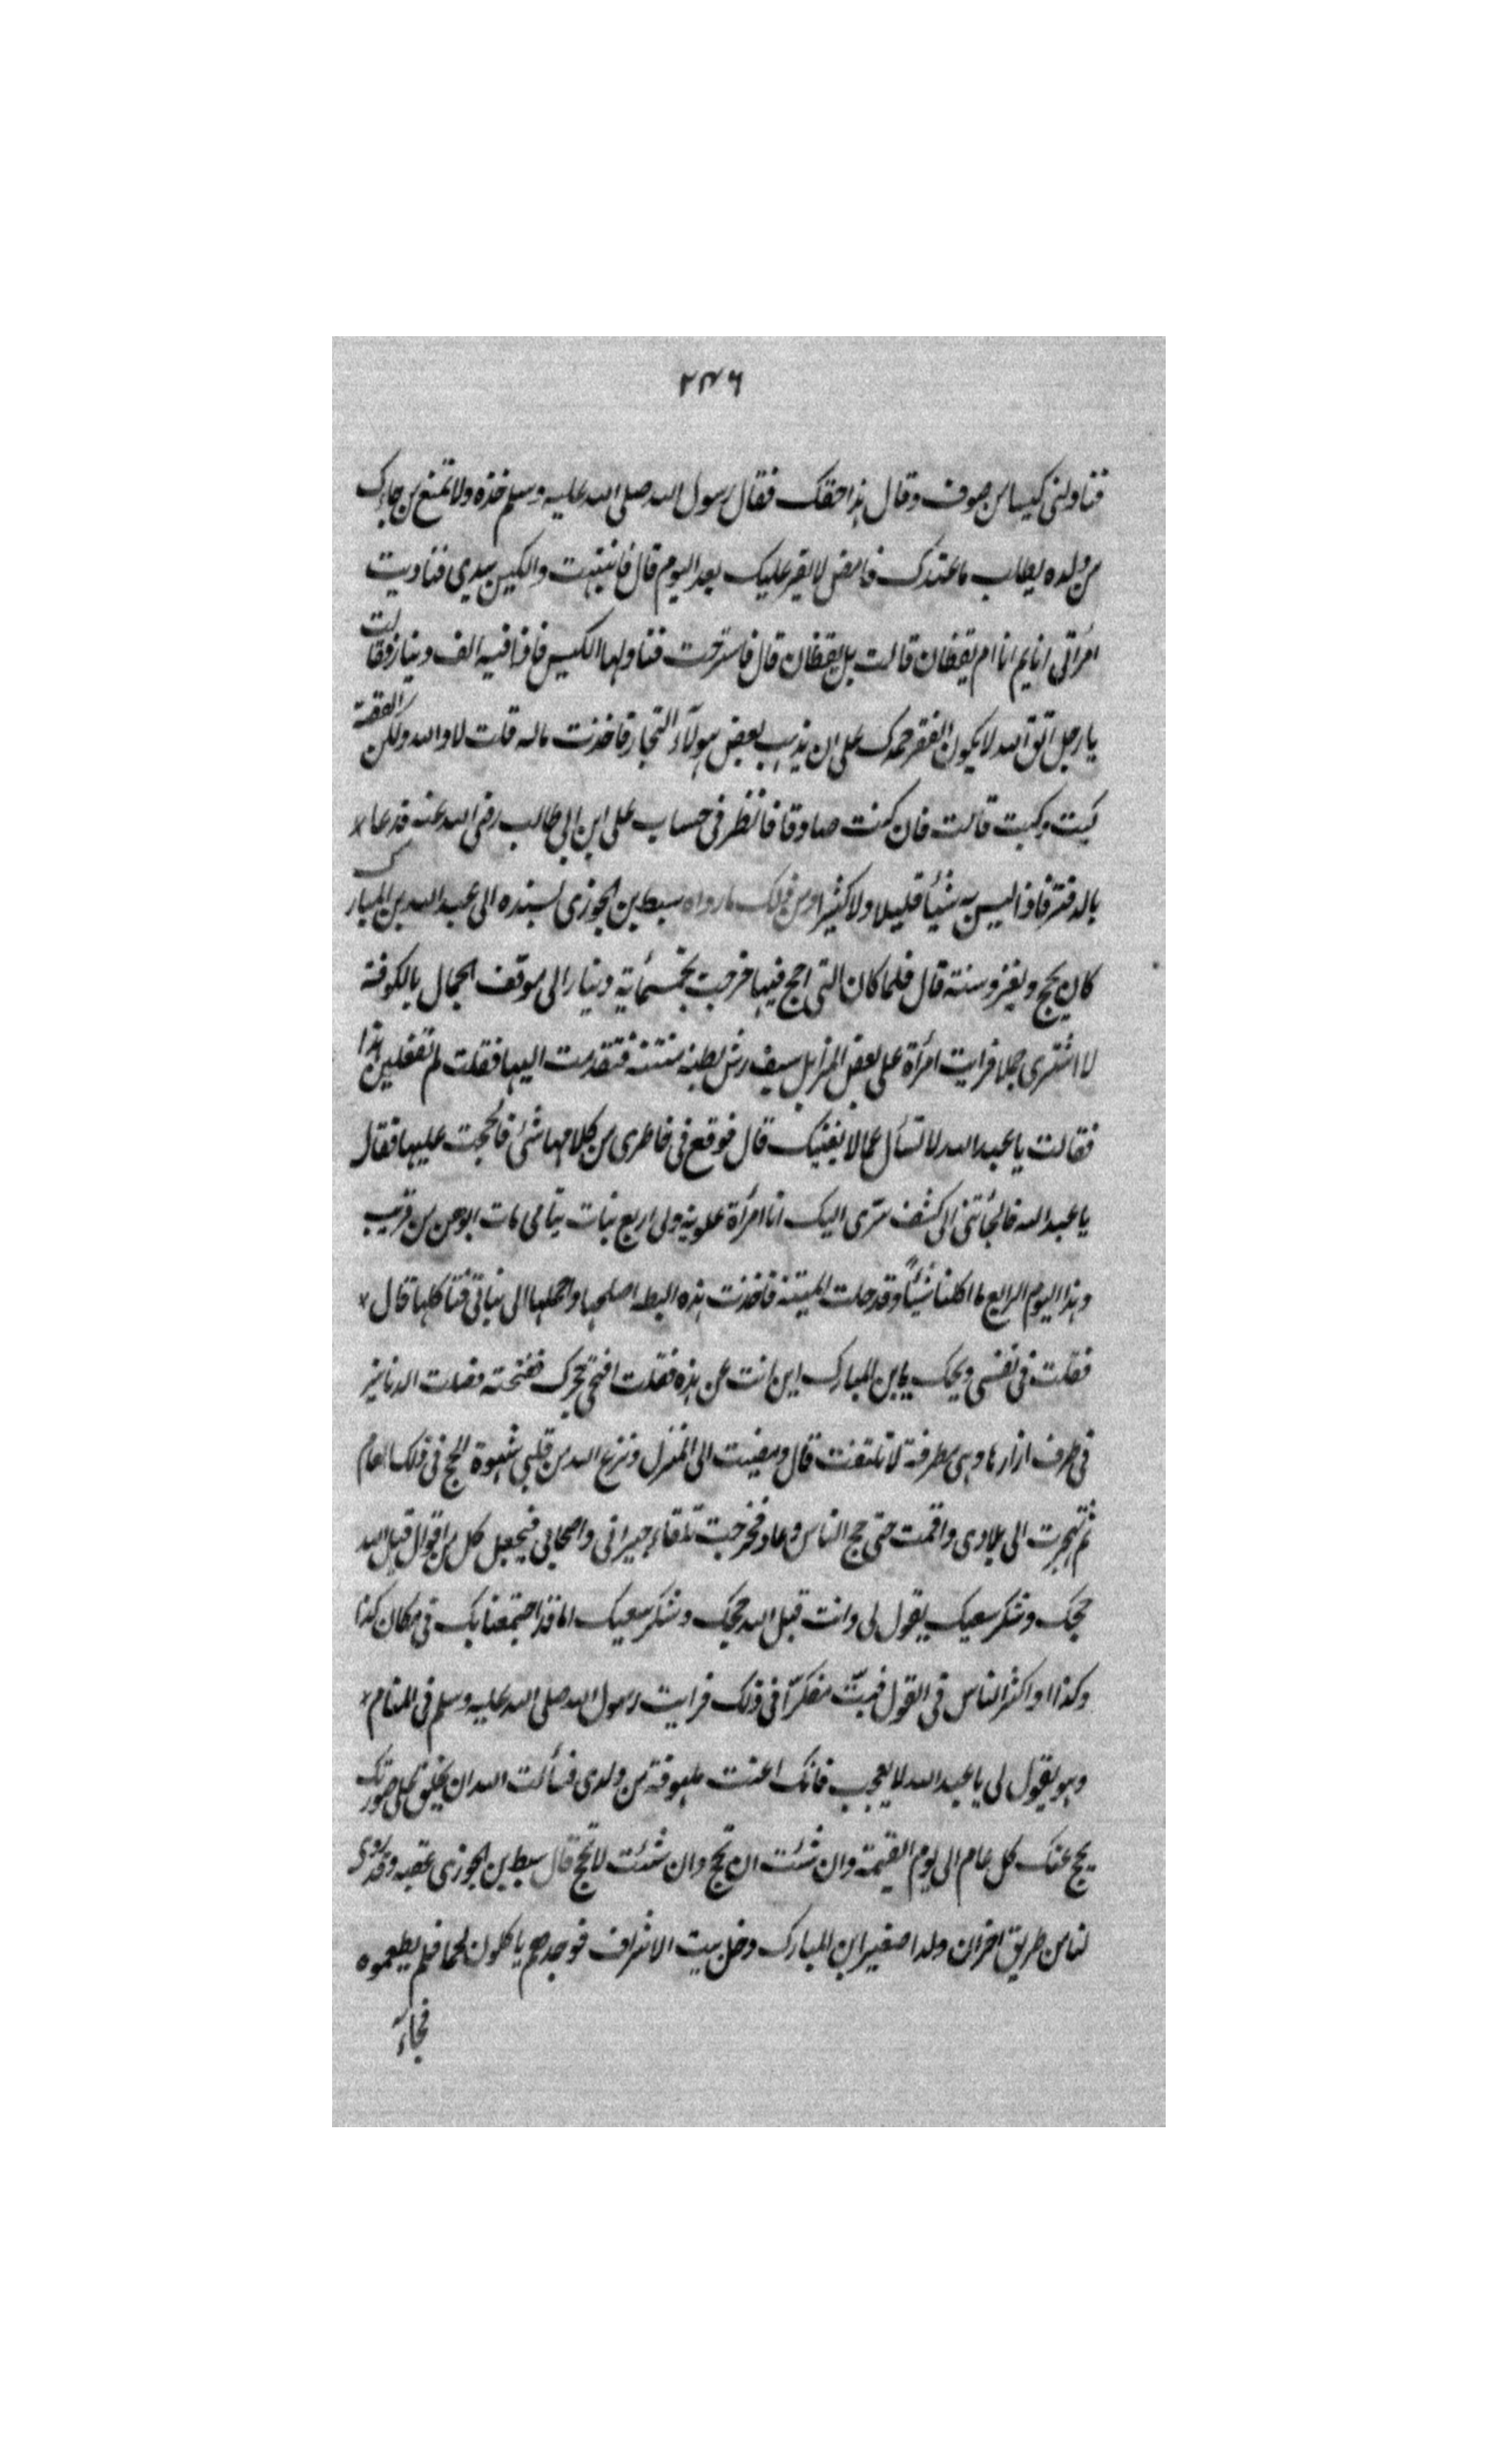 ٢٤٦
فناولنی کیسا من صوف وقال هذا حقک فقال رسول الله صلی الله علیه وسلم خذه ولا تمنع من جاءک
من ولده یطلب ما عندک فامض لا فقر علیک بعد الیوم قال فانتبهت والکیس بیدی فنادیت
امرأتی انایم انا ام یقظان قالت بل یقظان قال فاسرجت فناولها الکیس فاذا فیه الف دینار فقالت
یا رجل اتق الله لا یکون الفقر حمک علی ان یذهب بعض هولآء التجار فاخذت ماله قلت لا والله ولکن القصة
کیت وکیت قالت فان کنت صادقا فانظر فی حساب علی ابن ابی طالب رضی الله عنه فدعا
بالدفتر فاذا لیس به شیئا قلیلا ولا کثیرا ومن ذلک ما رواه سبط بن الجوزی بسنده الی عبد الله بن المبارک
کان یحج ویغزو سنة قال فلما کان التی احج فیها خرجت بخمسمائة دینار الی موقف الجمال بالکوفة
لا اشتری جملا فرایت امرأة علی بعض المزابل ریش بطة منتنة فتقدمت الیها فقلت لم تفعلین هذا
فقالت یا عبد الله لا تسأل عما لا یعنیک قال فوقع فی خاطری من کلامها شئ فالححت علیها فقالت
یا عبد الله فالجأتنی الی کشف سری الیک انا امرأة علویة ولی اربع بنات یتامی مات ابوهن من قریب
وهذا الیوم الرابع ما اکلنا شیئاً وقد حلت المیتة فاخذت هذه البطة اصلحها واحملها الی بناتی فتأکلها قال
فقلت فی نفسی ویحک یا بن المبارک این انت عن هذه فقلت افتحی حجرک ففتحته فصلت الدنانیر
فی طرف ازارها وهی مطرقة لا تلتفت قال ومضیت الی المنزل ونزع الله من قلبی شهوة الحج فی ذلک العام
ثم تجهزت الی بلادی واقمت حتی حج الناس وعاد فخرجت تلقاء جیرانی واصحابی فیجعل کل من اقول قبل الله
حجک وشکر سعیک یقول لی وانت قبل الله حجک وشکر سعیک اما قد اجتمعنا بک فی مکان کذا
وکذا واکثر الناس فی القول فبت مفکرا فی ذلک فرایت رسول الله صلی الله علیه وسلم فی المنام
وهو یقول لی یا عبد الله لا تعجب فانک اغثت ملهوفة من ولدی فسألت الله ان یخلق علی صورتک
یحج عنک کل عام الی یوم القیمة وان شئت ان تحج وان شئت لا تحج قال سبط بن الجوزی عقبه وقد روی
لنا من طریق اخر ان ولدا صغیرا لابن المبارک دخل بیت الاشراف فوجدهم یاکلون لحما فلم یطعموه
فجاء